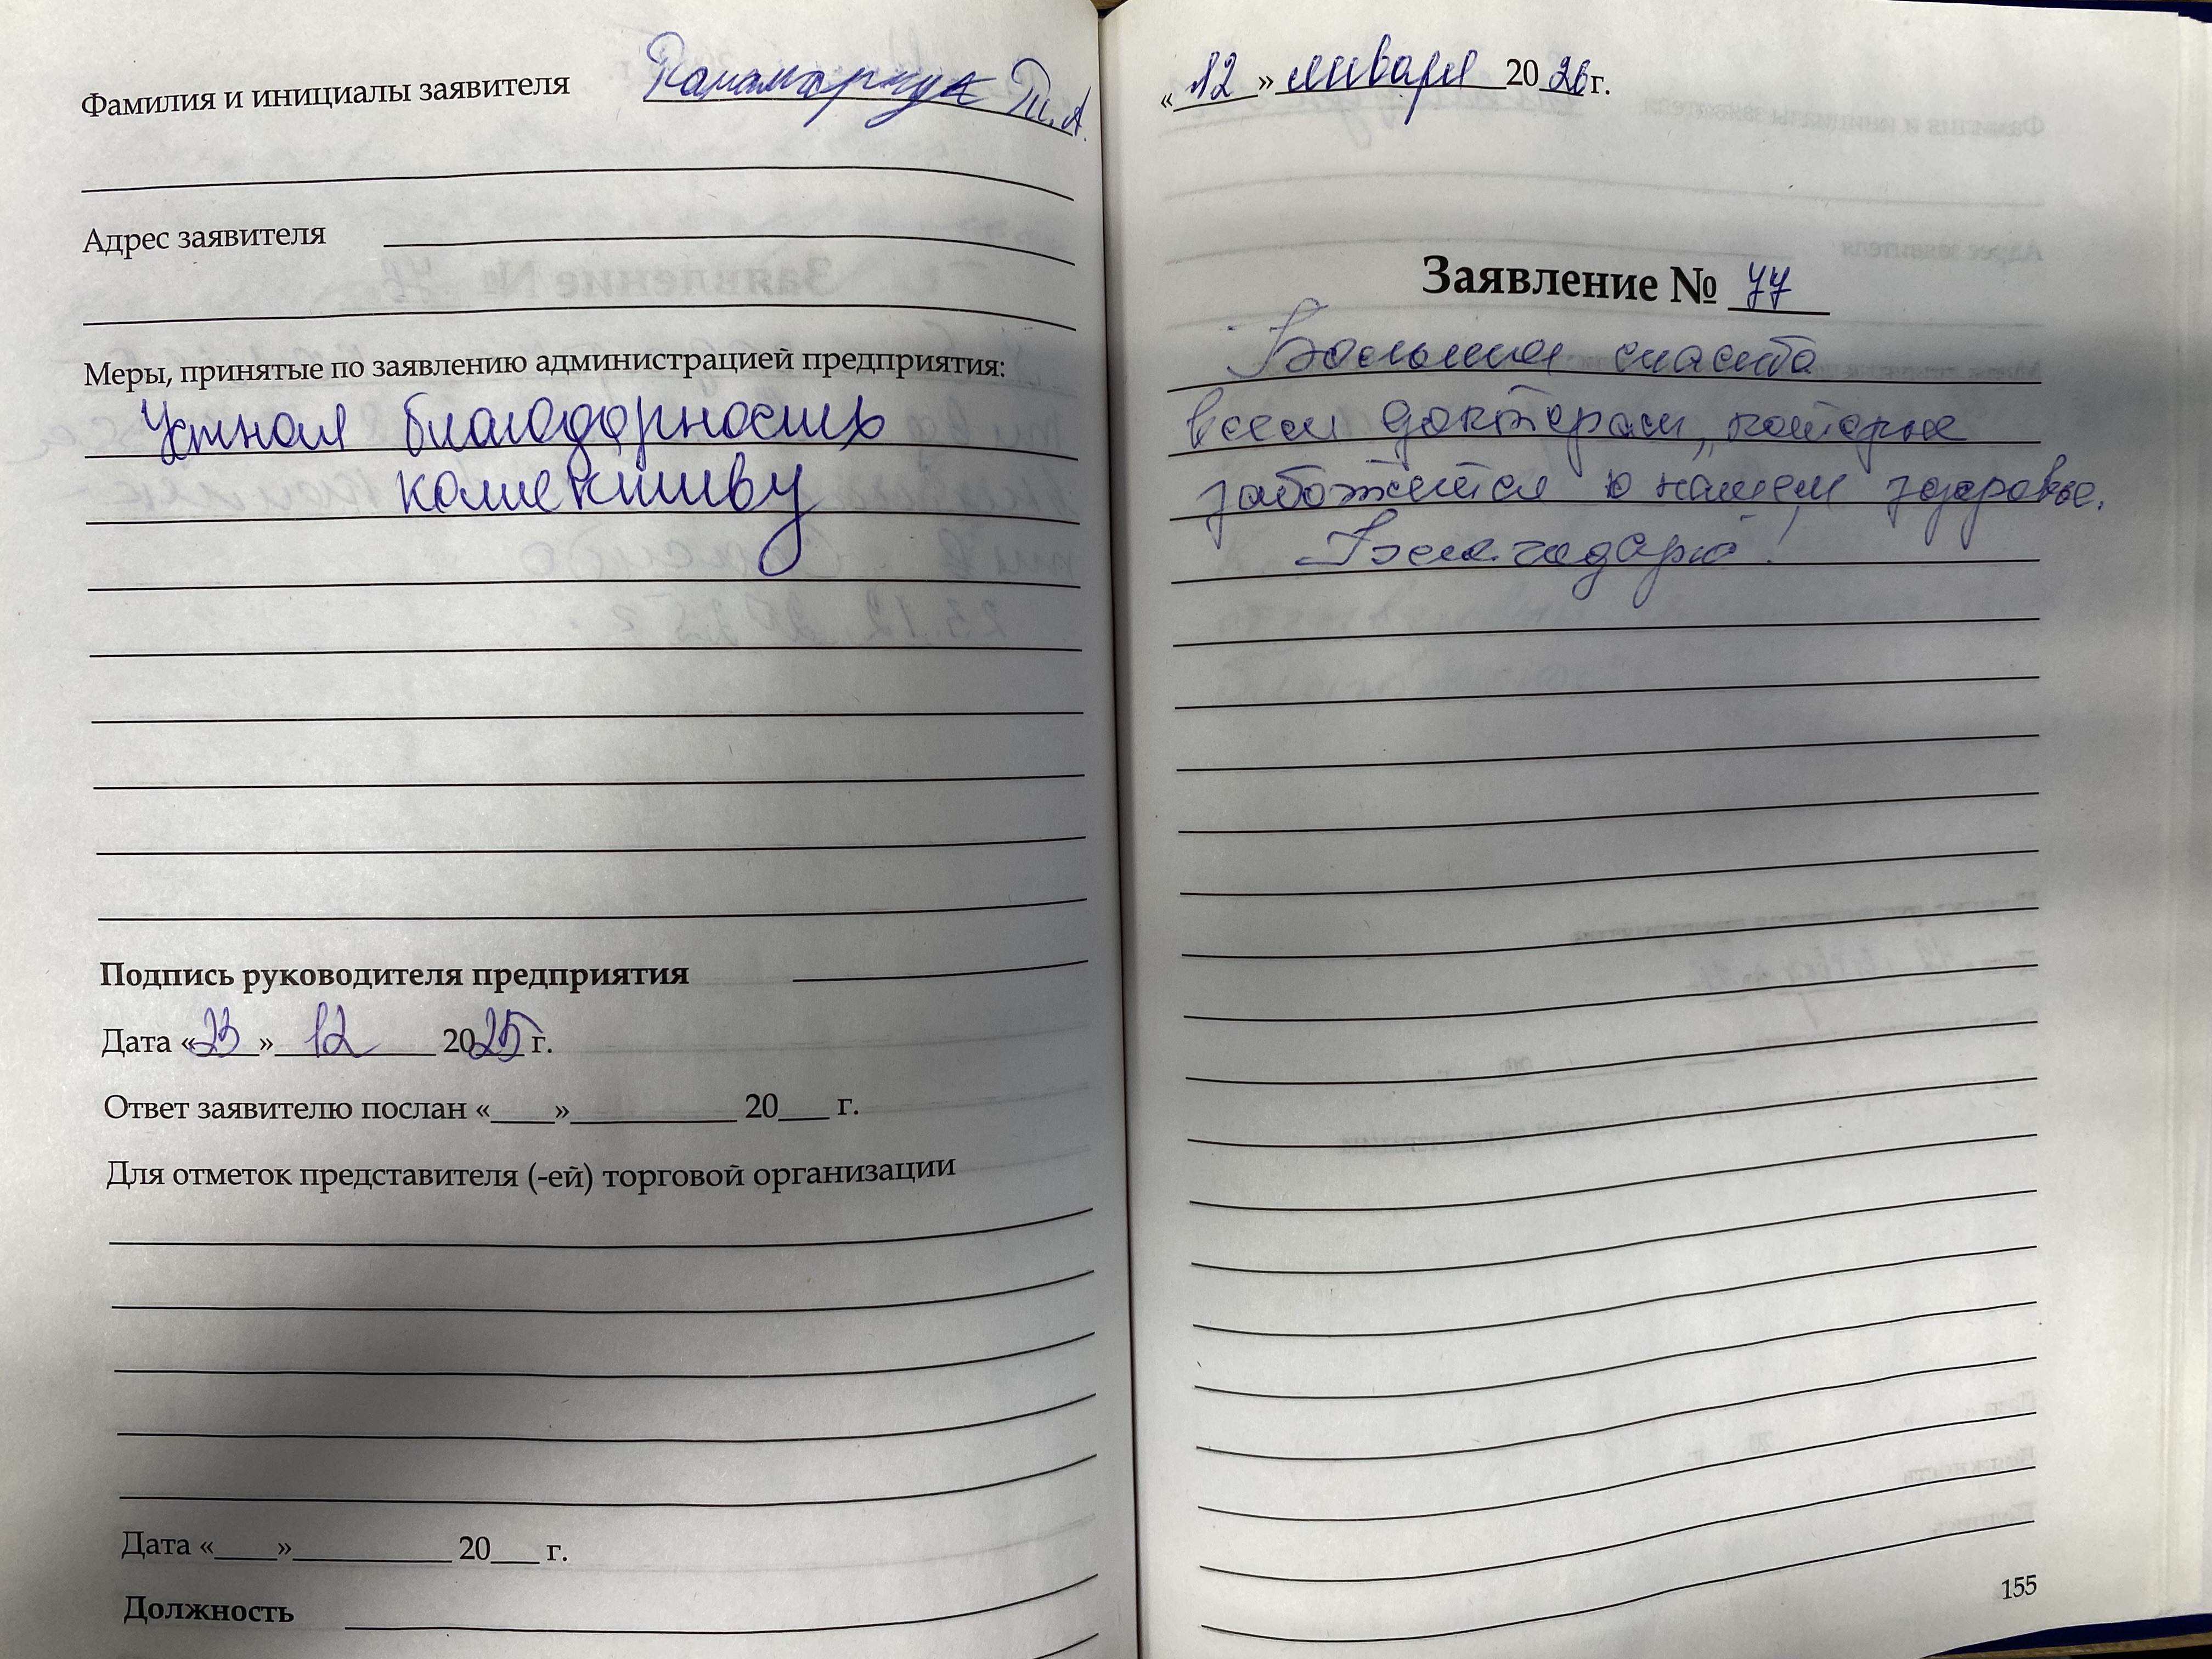 Фамилия и инициалы заявителя
Адрес заявителя
Меры, принятые по заявлению администрацией предприятия:
Устная благодарность
коллективу
Подпись руководителя предприятия
Дата «23» 12 2025 г.
Ответ заявителю послан «____»__________ 20___ г.
Для отметок представителя (-ей) торговой организации
Дата «____»__________ 20___ г.
Должность
«12» января 2026 г.
Заявление № 77
Большое спасибо
всем докторам, которые
заботятся о нашем здоровье.
Благодарю!
155